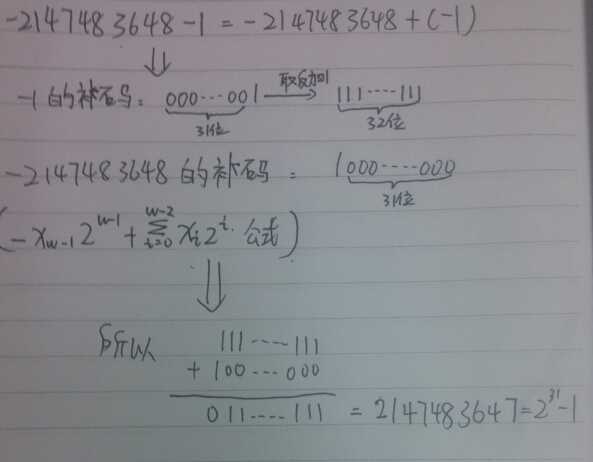 -2147483648-1 = -2147483648+(-1)
⇓
-1的补码: 000···001 取反加1→ 111····111
31位 32位
-2147483648的补码: 1000····000
31位
(-x_{w-1}2^{w-1} + \sum_{i=0}^{w-2} x_i2^i 公式)
⇓
所以 111····111
+ 100···000
011····111 = 2147483647=2^{31}-1